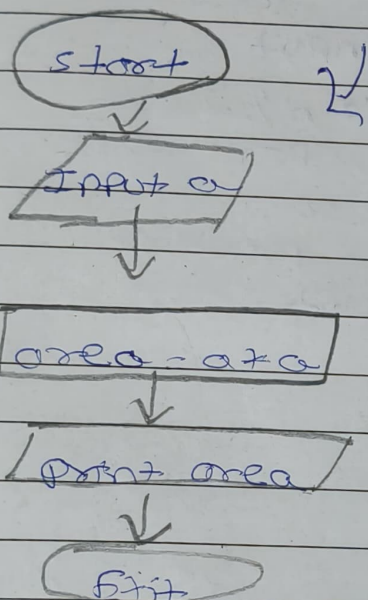 start
Input a
area = a * a
print area
Exit